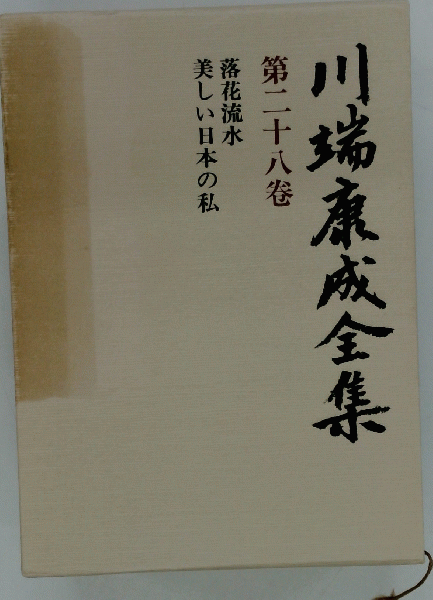 川端康成全集
第二十八卷
落花流水
美しい日本の私